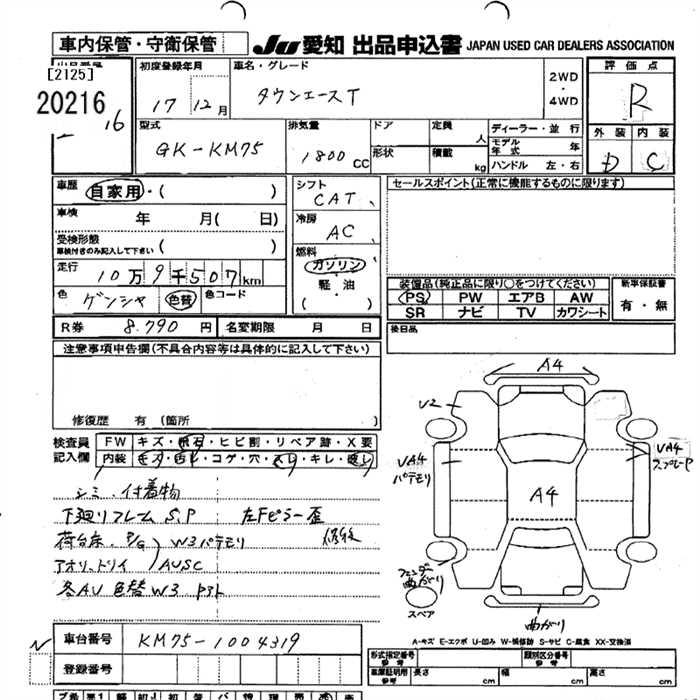 車内保管・守衛保管
JU 愛知 出品申込書 JAPAN USED CAR DEALERS ASSOCIATION
[2125]
20216
16
初度登録年月
17 12月
車名・グレード
タウンエースT
2WD
・
4WD
評価点
R
外装 内装
D C
型式
GK-KM75
排気量
1800cc
ドア
形状
定員
人
積載
kg
ディーラー・並行
モデル年式 年
ハンドル 左・右
車歴 自家用・( )
車検 年 月( 日)
受検形態 ( )
車検付きのみ記入して下さい
走行 10万9千507km
色 ゲンシャ 色替 色コード
R券 8.790円 名変期限 月 日
シフト
CAT
冷房
AC
燃料
ガソリン
軽・油
( ・ )
セールスポイント(正常に機能するものに限ります)
装備品(純正品に限り○をつけてください)
PS PW エアB AW
SR ナビ TV カワシート
新車保証書
有・無
後日品
注意事項申告欄(不具合内容等は具体的に記入して下さい)
修復歴 有(箇所
検査員
記入欄
FW キズ・飛石・ヒビ割・リペア跡・X要
内装 キズ・汚レ・コゲ・穴・スレ・キレ・破レ
シミ、付着物
下廻りフレームS,P 左Fピラー歪
荷台床 P/G W3パテモリ 修後
アオリ、トリイ AUSC
各AU 色替W3
A4
U2
UA4
パテモリ
A4
UA4
スプレーP
フェンダー
曲がり
スペア
曲がり
A-キズ E-エクボ U-凹み W-補修跡 S-サビ C-腐食 XX-交換済
N
車台番号 KM75-1004319
登録番号
形式指定番号
参考
類別区分番号
参考
長さ cm 幅 cm 高さ cm